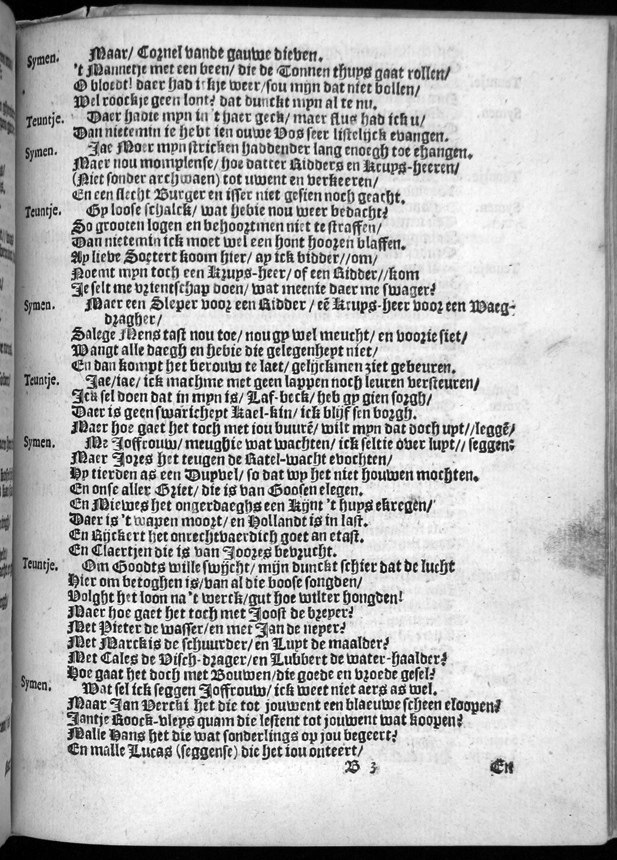 Symen. Maar/ Cornel vande gauwe dieven.
't Mannetje met een been/ die de Tonnen thuys gaat rollen/
O bloedt! daer had ickje weer/sou mijn dat niet bollen/
Wel roockje geen lont? dat dunckt mijn al te nu.
Teuntje. Daer hadie mijn in 't haer geck/ maer flus had ick u/
Dan nietemin je hebt ien ouwe Vos seer listelijck evangen.
Symen. Jae Moer mijn stricken haddender lang enoegh toe ehangen.
Maer nou momplense/ hoe datter Ridders en Kruys-heeren/
(Niet sonder archwaen) tot uwent en verkeeren/
En een slecht Burger en isser niet gesien noch geacht.
Teuntje. Gy loose schalck/ wat hebie nou weer bedacht?
So grooten logen en behoortmen niet te straffen/
Dan nietemin ick moet wel een hont hooren blaffen.
Ay lieve Soetert koom hier/ ay ick bidder//om/
Noemt mijn toch een Kruys-heer/ of een Ridder//kom
Je selt me vrientschap doen/ wat meenie daer me swager?
Symen. Maer een Sleper voor een Ridder/ eē Kruys-heer voor een Waeg-
dragher/
Salege Mens tast nou toe/ nou gy wel meucht/ en voorie siet/
Wangt alle daegh en hebie die gelegenheyt niet/
En dan kompt het berouw te laet/ gelijckmen ziet gebeuren.
Teuntje. Jae/iae/ ick mach me met geen lappen noch leuren versteuren/
Ick sel doen dat in mijn is/ Laf-beck/ heb gy gien sorgh/
Daer is geen swaricheyt Kael-kin/ ick blijf jen borgh.
Maer hoe gaet het toch met iou buurē/ wilt mijn dat doch uyt//leggē/
Symen. Me Joffrouw/ meughie wat wachten/ ick seltie over luyt// seggen:
Maer Jores het teugen de Ratel-wacht evochten/
Hy tierden as een Duyvel/ so dat wy het niet houwen mochten.
En onse aller Griet/ die is van Goosen elegen.
En Miewes het ongerdaeghs een Kijnt 't huys ekregen/
Daer is 't wapen moort/ en Hollandt is in last.
En Rijckert het onrechtvaerdich goet an etast.
En Claertjen die is van Joores bevrucht.
Teuntje. Om Goodts wille swijcht/ mijn dunckt schier dat de lucht
Hier om betoghen is/van al die boose songden/
Volght het loon na 't werck/gut hoe wilter hongden!
Maer hoe gaet het toch met Joost de breyer?
Met Pieter de wasser/en met Jan de neyer?
Met Marckis de schuurder/ en Luyt de maalder?
Met Cales de Visch-drager/en Lubbert de water-haalder?
Hoe gaat het doch met Bouwen/die goede en vroede gesel?
Symen. Wat sel ick seggen Joffrouw/ ick weet niet aers as wel.
Maar Jan Vercki het die tot jouwent een blaeuwe scheen eloopen?
Jantje Roock-vleys quam die lestent tot jouwent wat koopen?
Malle Hans het die wat sonderlings op jou begeert?
En malle Lucas (seggense) die het iou onteert/
B 3 En